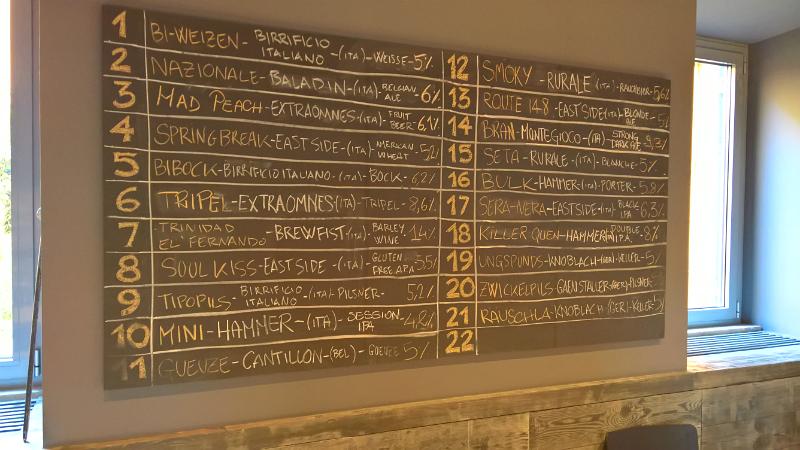 1 BI-WEIZEN - BIRRIFICIO ITALIANO - (ITA) - WEISSE - 5%
2 NAZIONALE - BALADIN - (ITA) - BELGIAN ALE 6%
3 MAD PEACH - EXTRAOMNES - (ITA) - FRUIT BEER - 6,1%
4 SPRING BREAK - EAST SIDE - (ITA) - AMERICAN WHEAT - 5,2%
5 BIBOCK - BIRRIFICIO ITALIANO - (ITA) - BOCK - 6,2%
6 TRIPEL - EXTRAOMNES (ITA) - TRIPEL - 8,6%
7 TRINIDAD EL' FERNANDO - BREWFIST (ITA) - BARLEY WINE 14%
8 SOUL KISS - EAST SIDE - (ITA) - GLUTEN FREE APA 5,5%
9 TIPOPILS - BIRRIFICIO ITALIANO - (ITA) - PILSNER - 5,2%
10 MINI-HAMMER - (ITA) - SESSION IPA
11 GUEUZE - CANTILLON - (BEL) - GUEUZE 5%
12 SMOKY - RURALE - (ITA) - RAUCHBIER - 5,6%
13 ROUTE 148 - EAST SIDE (ITA) - BLONDE ALE - 5%
14 BRAN - MONTEGIOCO - (ITA) STRONG DARK ALE
15 SETA - RURALE - (ITA) - BLANCHE - 5%
16 BULK - HAMMER - (ITA) - PORTER - 5,8%
17 SERA-NERA - EASTSIDE - (ITA) BLACK IPA - 6,3%
18 KILLER QUEN - HAMMER (ITA) DOUBLE IPA - 8%
19 UNGSPUNDS - KNOBLACH - (GER) - KELLER - 5%
20 ZWICKELPILS GÄNSTALLER - (GER) - PILSNER
21 RAUSCHLA - KNOBLACH (GER) - KELLER 5%
22